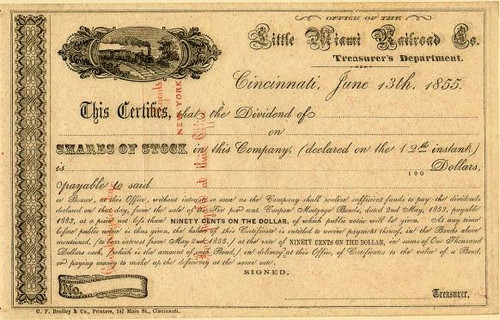 OFFICE OF THE
Little Miami Railroad Co.
Treasurer's Department.
Cincinnati, June 13th, 1855.
This Certifies, that the Dividend of
on
SHARES OF STOCK in this Company, (declared on the 12th instant)
is 100 Dollars,
payable to said
or Bearer, at this Office, without interest, so soon as the Company shall realize sufficient funds to pay the dividends
declared on that day, from the sale of Six Per cent Coupon Mortgage Bonds, dated 2nd May, 1853, payable
1883, at a price not less than NINETY CENTS ON THE DOLLAR, of which public notice will be given. At any time
before public notice is thus given, the holder of this Certificate is entitled to receive payment thereof, in the Bonds above
mentioned, (to bear interest from May 2nd 1855,) at the rate of NINETY CENTS ON THE DOLLAR, in sums of One Thousand
Dollars each, (which is the amount of each Bond,) on delivery at this Office, of Certificates to the value of a Bond,
or paying money to make up the deficiency at the same rate.
SIGNED,
No.
Treasurer.
C. F. Bradley & Co., Printers, 147 Main St., Cincinnati.
NEW YORK